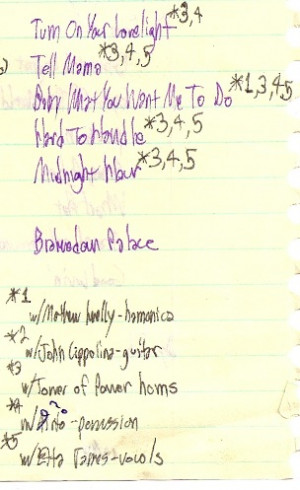 Turn On Your Lovelight *3,4
Tell Mama *3,4,5
Baby What You Want Me To Do *1,3,4,5
Hard To Handle *3,4,5
Midnight Hour *3,4,5
Brokedown Palace
*1
w/Mathew Kelly-harmonica
*2
w/John Cippolina-guitar
*3
w/Tower of Power horns
*4
w/ -percussion
*5
w/Etta James-vocals